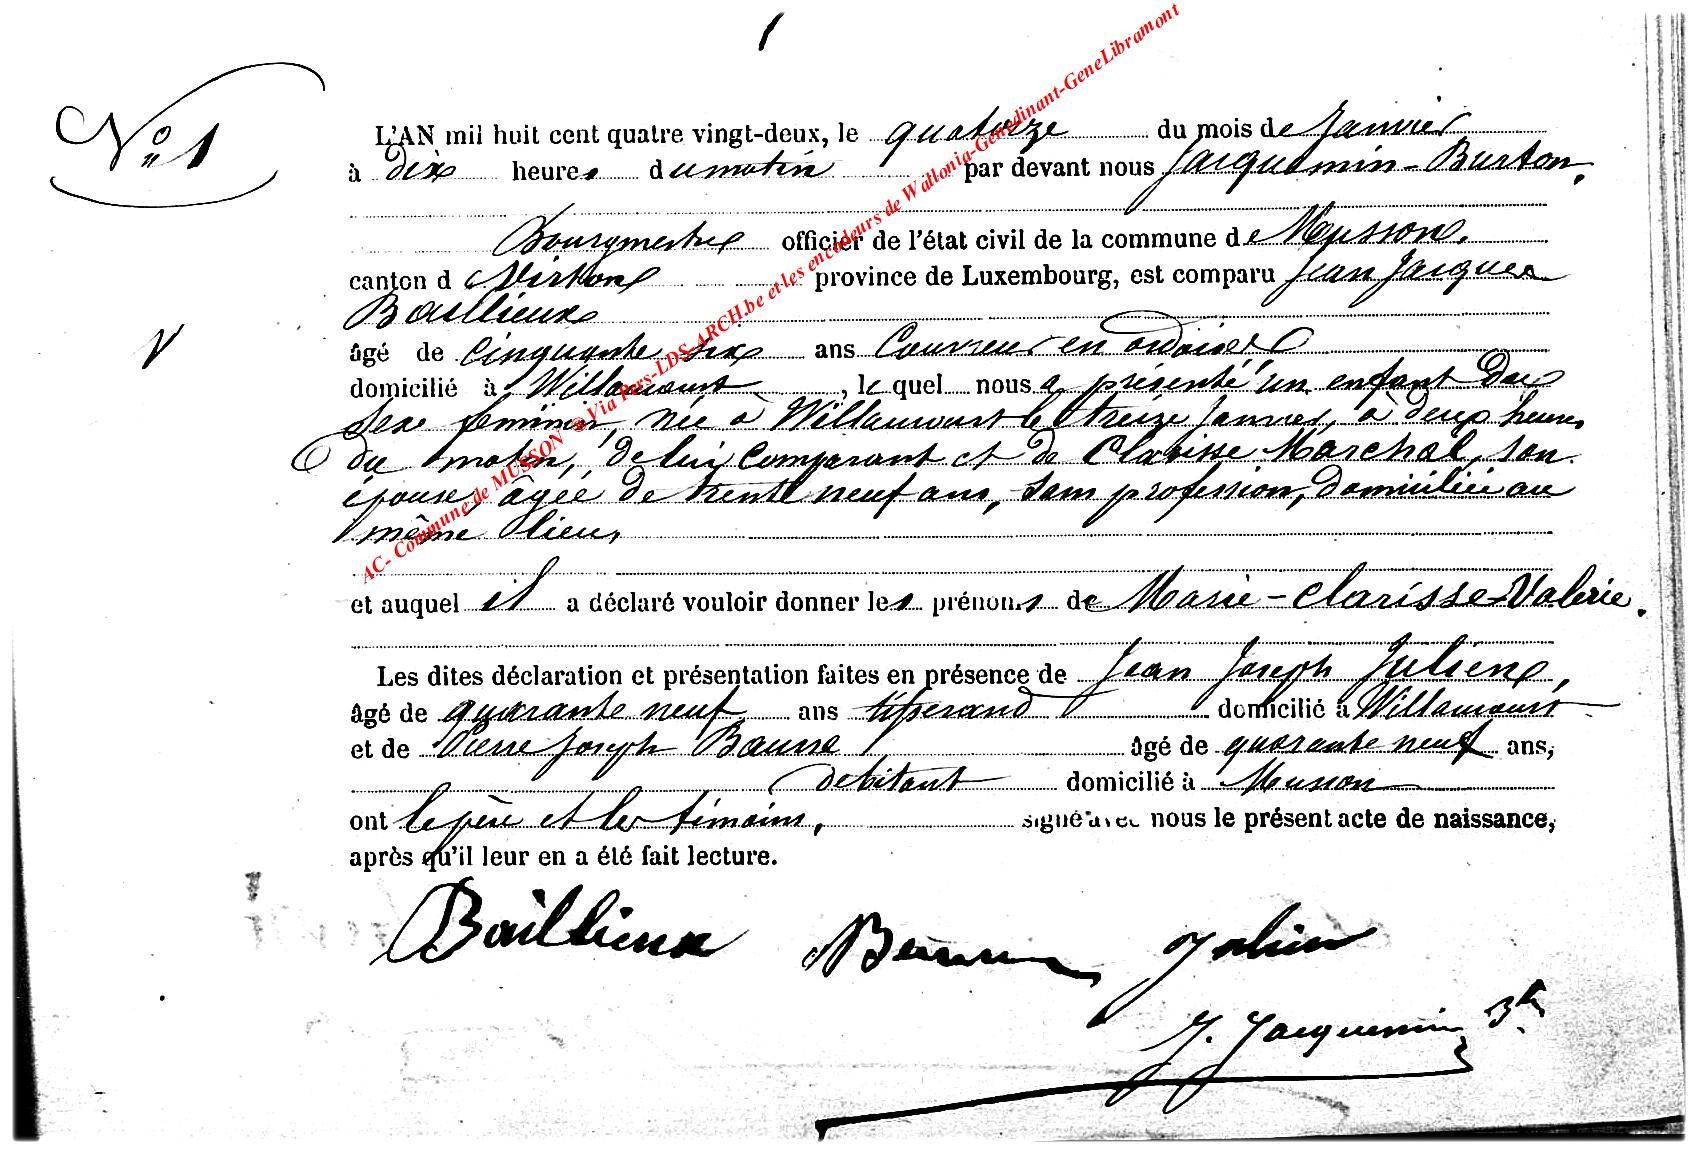 1
N° 1
L'AN mil huit cent quatre vingt-deux, le quatorze du mois de Janvier
à dix heures du matin par devant nous Jacquemin-Burton,
Bourgmestre officier de l'état civil de la commune de Musson,
canton d Virton province de Luxembourg, est comparu Jean Jacques
Baillieux
âgé de cinquante six ans Couvreur en ardoises
domicilié à Willancourt, le quel nous a présenté un enfant du
sexe féminin, née à Willancourt le treize Janvier, à deux heures
du matin, de lui comparant et de Clarisse Marchal, son
épouse, âgée de trente neuf ans, sans profession, domiciliée au
même lieu,
et auquel il a déclaré vouloir donner les prénoms de Marie-Clarisse-Valérie.
Les dites déclaration et présentation faites en présence de Jean Joseph Julien,
âgé de quarante neuf ans tisserand domicilié à Willancourt
et de Pierre Joseph âgé de quarante neuf ans,
débitant domicilié à Musson
ont le père et les témoins, signé avec nous le présent acte de naissance,
après qu'il leur en a été fait lecture.
Baillieux Julien
J. Jacquemin
AC- Commune de MUSSON @ Via Pars-LDS-ARCH.be et les encodeurs de Wallonia-Genedinant-GeneLibramont